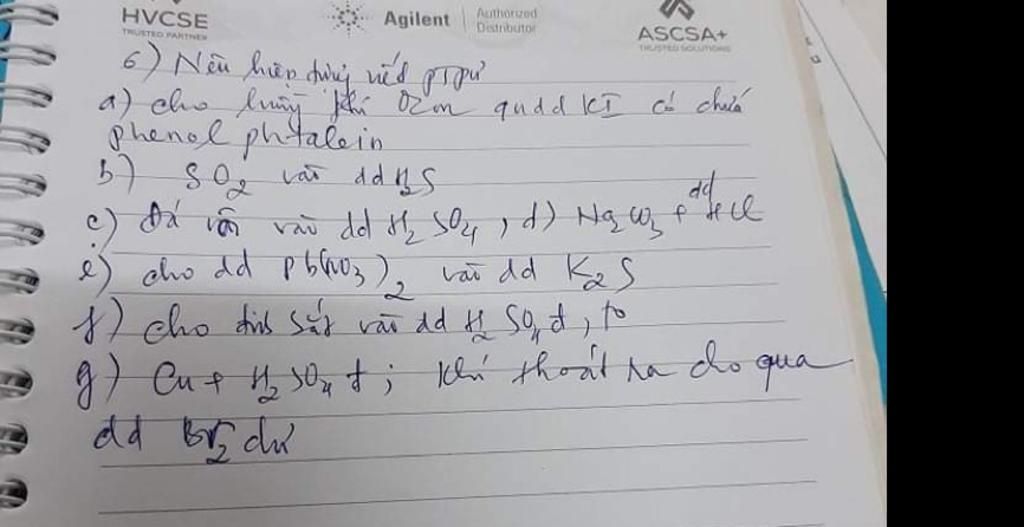 HVCSE
TRUSTED PARTNER
Agilent
Authorized
Distributor
ASCSA+
TRUSTED SOLUTIONS
6) Nêu hiện tượng viết ptpư
a) cho luồng khí ozon qua dd KI có chứa
phenol phtalein
b) SO2 vào dd H2S
c) Đá vôi vào dd H2SO4, d) Na2CO3 + dd HCl
e) cho dd Pb(NO3)2 vào dd K2S
f) cho đinh sắt vào dd H2SO4 đ, to
g) Cu + H2SO4 đ; khí thoát ra cho qua
dd Br2 dư